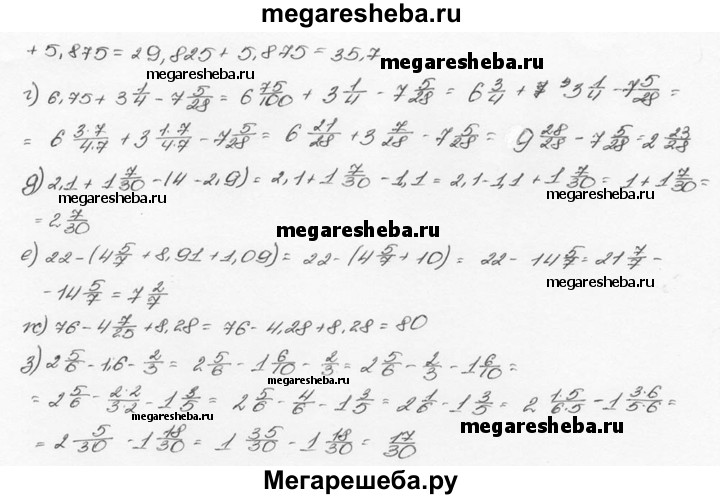 megaresheba.ru
+ 5,875 = 29,825 + 5,875 = 35,7
megaresheba.ru
megaresheba.ru
г) 6,75 + 3 1/4 - 7 5/28 = 6 75/100 + 3 1/4 - 7 5/28 = 6 3/4 + 3 1/4 - 7 5/28 =
= 6 3·7/4·7 + 3 1·7/4·7 - 7 5/28 = 6 21/28 + 3 7/28 - 7 5/28 = 9 28/28 - 7 5/28 = 2 23/28
д) 2,1 + 1 7/30 - (4 - 2,9) = 2,1 + 1 7/30 - 1,1 = 2,1 - 1,1 + 1 7/30 = 1 + 1 7/30 =
megaresheba.ru
megaresheba.ru
= 2 7/30
megaresheba.ru
е) 22 - (4 5/7 + 8,91 + 1,09) = 22 - (4 5/7 + 10) = 22 - 14 5/7 = 21 7/7 -
megaresheba.ru
- 14 5/7 = 7 2/7
megaresheba.ru
ж) 76 - 4 7/25 + 8,28 = 76 - 4,28 + 8,28 = 80
з) 2 5/6 - 1,6 - 2/3 = 2 5/6 - 1 6/10 - 2/3 = 2 5/6 - 2/3 - 1 6/10 =
megaresheba.ru
= 2 5/6 - 2·2/3·2 - 1 3/5 = 2 5/6 - 4/6 - 1 3/5 = 2 1/6 - 1 3/5 = 2 1·5/6·5 - 1 3·6/5·6 =
megaresheba.ru
megaresheba.ru
= 2 5/30 - 1 18/30 = 1 35/30 - 1 18/30 = 17/30
Мегарешеба.ру